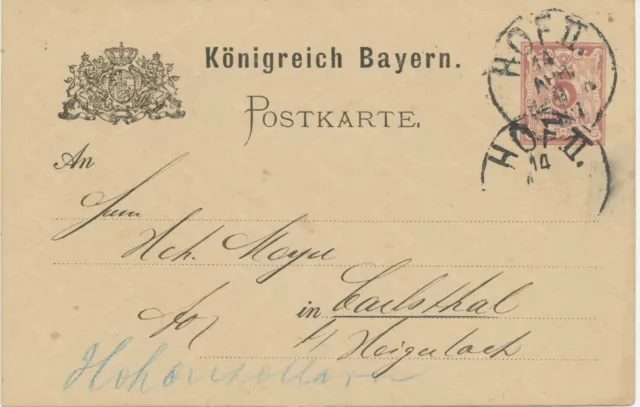 Königreich Bayern.
POSTKARTE.
HOF II.
14
5
HOF II.
14
An
Herrn
Hch. Meyer
in Carlsthal
b/ Heigerloch
Hohenzollern